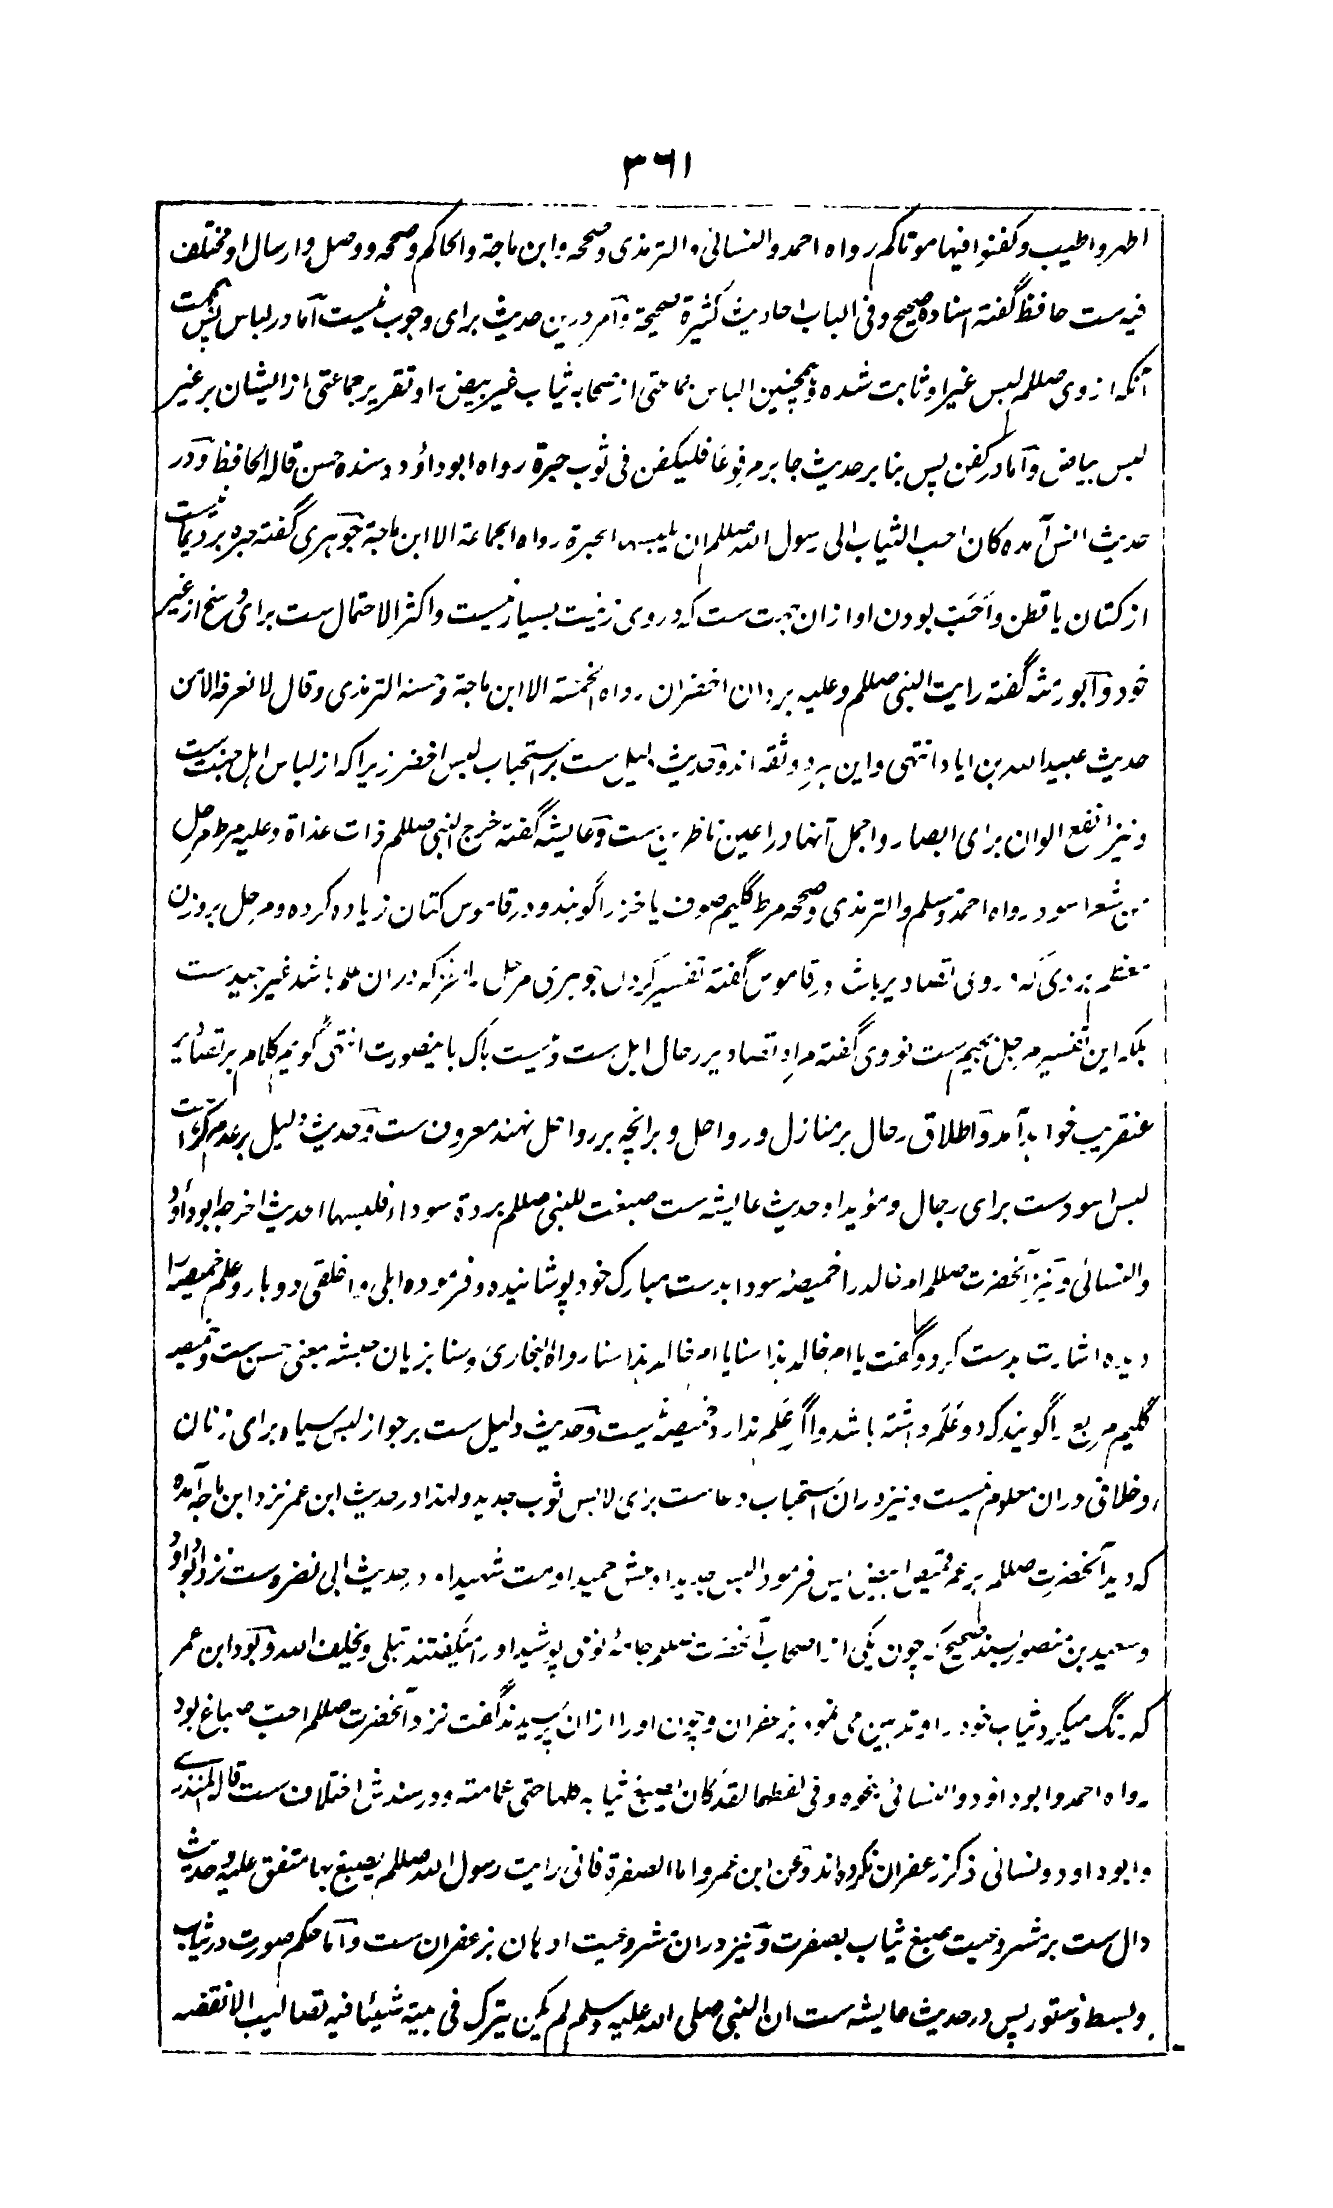 ۳۶۱
اطهر واطیب وکفنوا فیها موتاکم رواه احمد والنسائی والترمذی وصححه وابن ماجة والحاکم وصححه ووصل وارسال او مختلف
فیه ست حافظ گفته اسناده صحیح وفی الباب احادیث کثیرة صحیحة وامر درین حدیث برای وجوب نیست اما در لباس پس بجهت
آنکه از وی صللم لبس غیر او ثابت شده وهمچنین الباس جماعتی از صحابه ثیاب غیر بیض را و تقریر جماعتی از ایشان بر غیر
لبس بیاض واما در کفن پس بنا بر حدیث جابر مرفوعا فلیکفن فی ثوب حبرة رواه ابوداؤد وسنده حسن قاله الحافظ ودر
حدیث انس آمده کان احب الثیاب الی رسول الله صللم ان یلبسها الحبرة رواه الجماعة الا ابن ماجة جوهری گفته حبره برد یمانیست
از کتان یا قطن واحب بودن او ازان جهت ست که در وی زینت بسیار نیست واکثر الاحتمال ست برای وسخ از غیر
خود وابورمثه گفته رایت النبی صللم وعلیه بردان اخضران رواه الخمسة الا ابن ماجة وحسنه الترمذی وقال لا نعرفه الا من
حدیث عبید الله بن ایاد انتهی واین هر دو ثقه اند وحدیث دلیل ست بر استحباب لبس اخضر زیرا که از لباس اهل جنت ست
ونیز انفع الوان برای ابصار واجمل آنها در اعین ناظرین ست وعایشه گفته خرج النبی صللم ذات غداة وعلیه مرط مرحل
من شعر اسود رواه احمد ومسلم والترمذی وصححه مرط گلیم صوف یا خز را گویند ودر قاموس کتان زیاده کرده ومرحل بروزن
معظم بردی که در وی تصاویر باشد در قاموس گفته تفسیر کردن جوهری مرحل را بخز که دران علم باشد غیر جید ست
بلکه این تفسیر مرجل بجیم ست نووی گفته مراد تصاویر رحال ابل ست ونیست باک باینصورت انتهی گویم کلام بر تصاویر
عنقریب خواهد آمد واطلاق رحال بر منازل ورواحل وبرانچه بر رواحل نهند معروف ست وحدیث دلیل بر عدم کراهت
لبس اسود ست برای رجال ومؤید او حدیث عایشه ست صبغت للنبی صللم بردة سوداء فلبسها الحدیث اخرجه ابوداؤد
والنسائی ونیز آنحضرت صللم ام خالد را خمیصهٔ سودا بدست مبارک خود پوشانیده وفرموده ابلی واخلقی دوبار وعلم خمیصه را
دیده اشارت بدست کرد وگفت یا ام خالد هذا سنا یا ام خالد هذا سنا رواه البخاری وسنا بزبان حبشه بمعنی حسن ست وخمیصه
گلیم مربع را گویند که دو علم داشته باشد واگر علم ندارد خمیصه نیست وحدیث دلیل ست بر جواز لبس سیاه برای زنان
وخلافی دران معلوم نیست ونیز دران استحباب دعا ست برای لابس ثوب جدید ولهذا در حدیث ابن عمر نزد ابن ماجه آمده
که دید آنحضرت صللم بر عمر قمیص ابیض پس فرمود البس جدیدا وعش حمیدا ومت شهیدا ودر حدیث ابی نضره ست نزد ابوداؤد
وسعید بن منصور بسند صحیح که چون یکی از اصحاب آنحضرت صللم جامهٔ نوی پوشید او را میگفتند تبلی ویخلف الله وبود ابن عمر
که رنگ میکرد ثیاب خود را وتدهین می نمود بزعفران وچون او را ازان پرسیدند گفت نزد آنحضرت صللم احب صباغ بود
رواه احمد وابوداود والنسائی بنحوه وفی لفظهما لقد کان یصبغ ثیابه کلها حتی عمامته ودر سندش اختلاف ست قاله المنذری
وابوداود ونسائی ذکر زعفران نکرده اند وعن ابن عمر واما الصفرة فانی رایت رسول الله صللم یصبغ بها متفق علیه وحدیث
دال ست بر مشروعیت صبغ ثیاب بصفرت ونیز دران مشروعیت ادهان بزعفران ست واما حکم صورت در ثیاب
وبسط وستور پس در حدیث عایشه ست ان النبی صلی الله علیه وسلم لم یکن یترک فی بیته شیئا فیه تصالیب الا نقضه